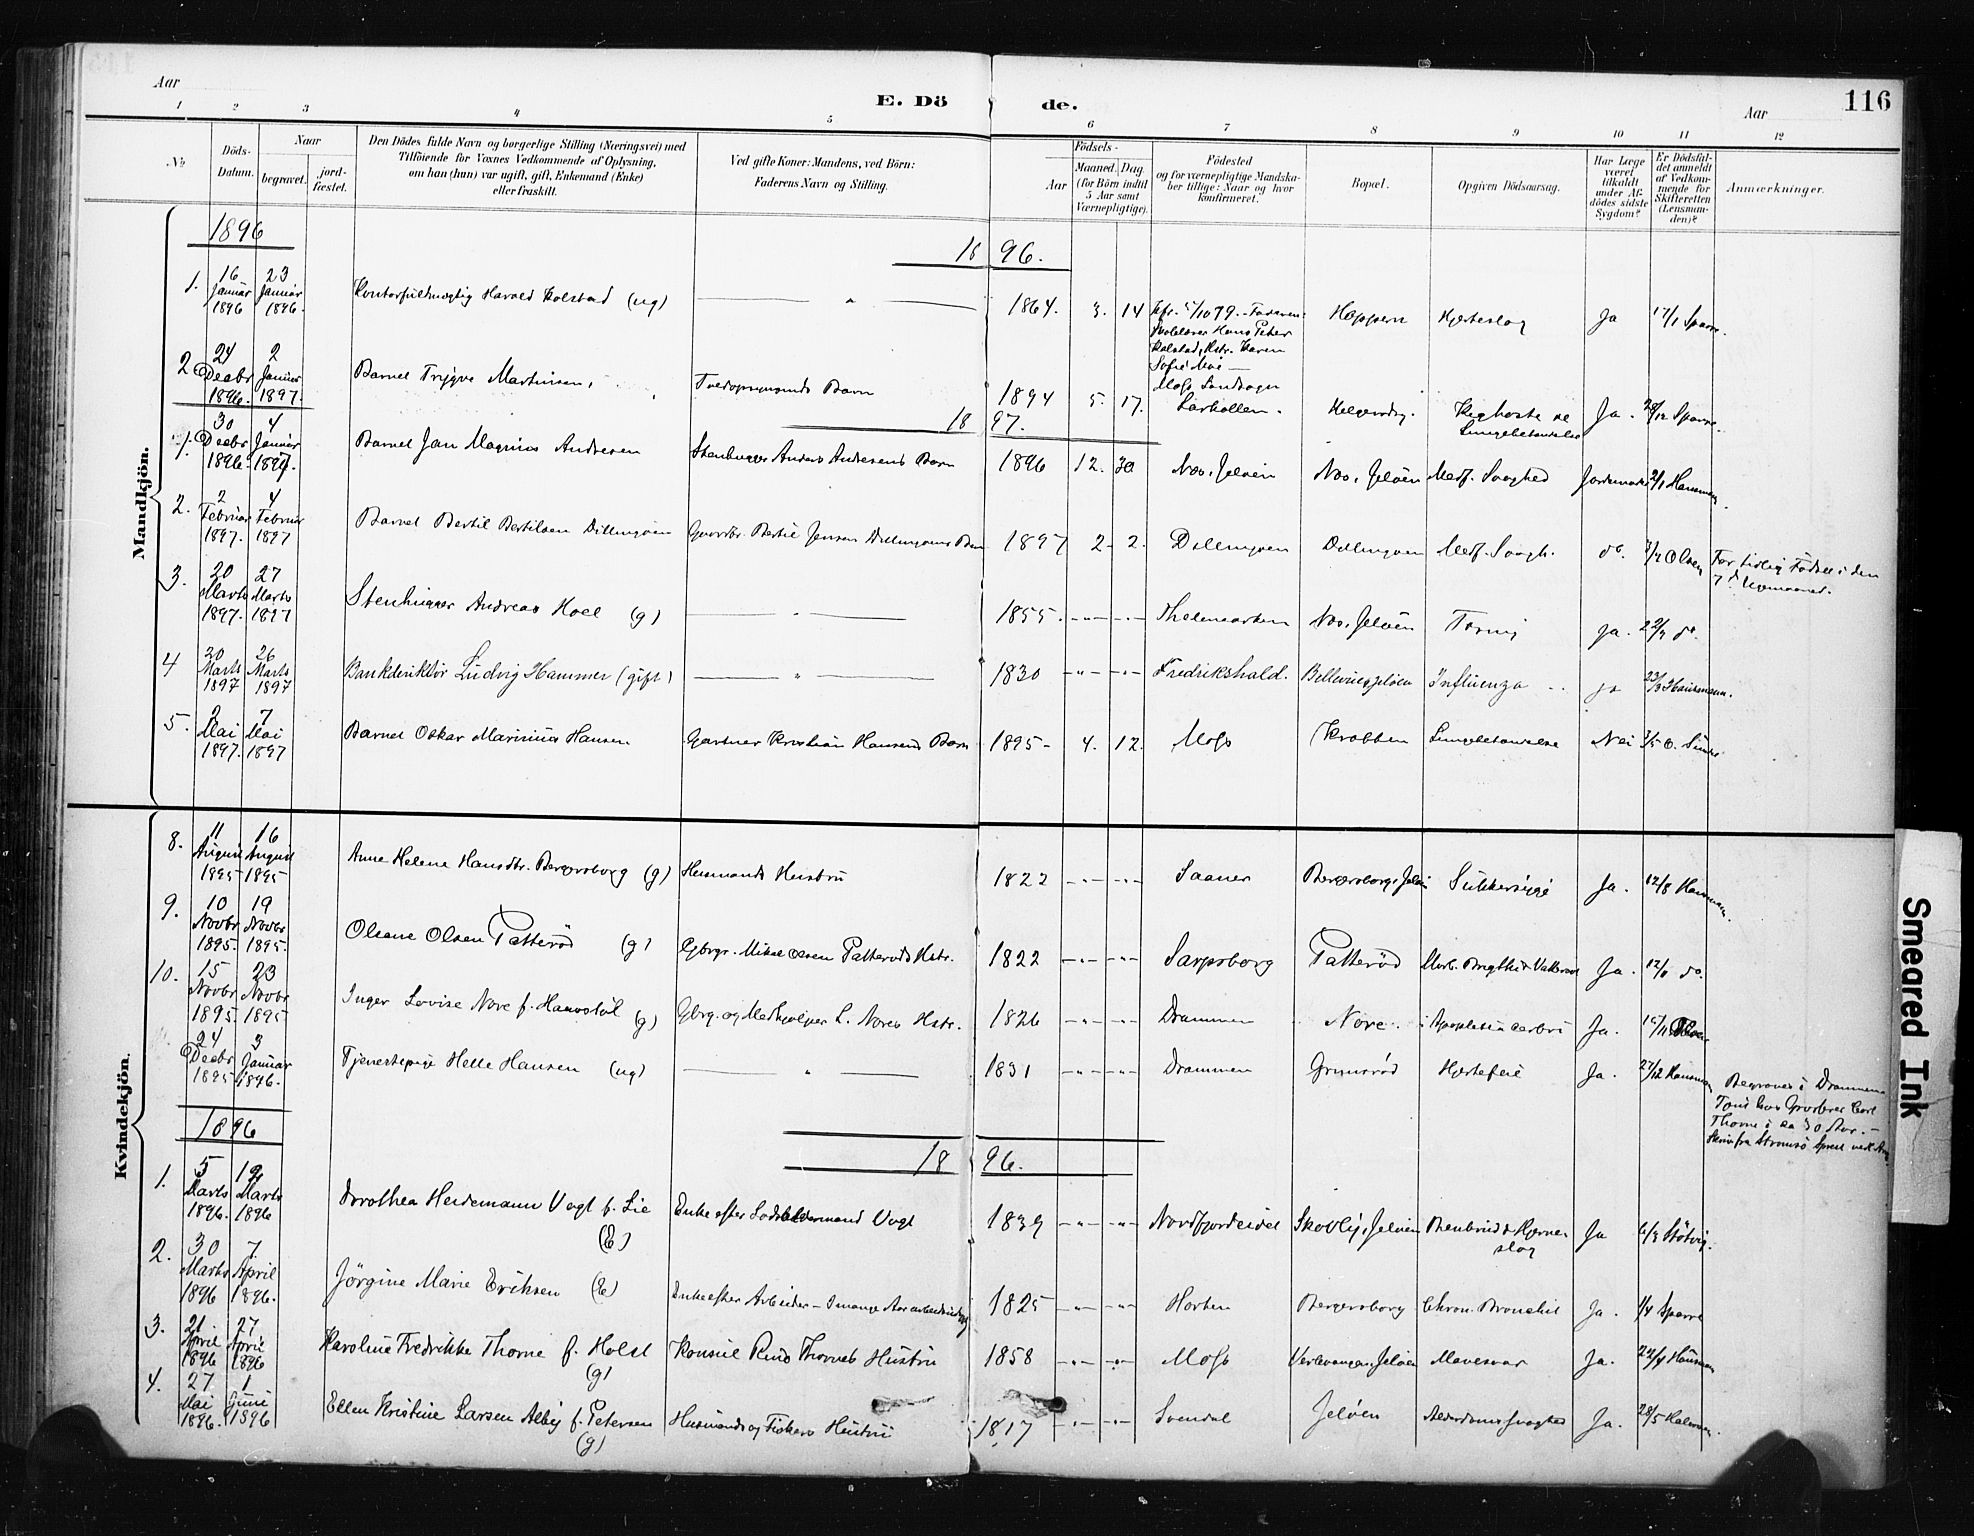 Aar
E. Dö
de.
Aar
116
1 2 3 4 5 6 7 8 9 10 11 12
No
Döds-Datum.
Naar
begravet.
jord-fæstet.
Den Dödes fulde Navn og borgerlige Stilling (Næringsvei) med
Tilföiende for Voxnes Vedkommende af Oplysning,
om han (hun) var ugift, gift, Enkemand (Enke)
eller fraskilt.
Ved gifte Koner: Mandens, ved Börn:
Faderens Navn og Stilling.
Födsels-
Aar
Maaned. Dag.
(for Börn indtil
5 Aar samt
Værnepligtige).
Födested
og for værnepligtige Mandska-
ber tillige: Naar og hvor
konfirmeret.
Bopæl.
Opgiven Dödsaarsag.
Har Læge
været
tilkaldt
under Af-
dödes sidste
Sygdom?
Er Dödsfal-
det anmeldt
af Vedkom-
mende for
Skifteretten
(Lensman-
den)?
Anmærkninger.
Mandkjön.
1896
18 96.
1. 16 Januar 1896 23 Januar 1896. Kontorfuldmægtig Harald Kolstad (ug) — " — 1864. 3. 14 Hjerteslag Ja 17/1 Sparre.
Hans Peter
Kolstad, Hstr. Karen
Sofie Moe —
Moss Landsogn
2 24 Decbr 1896. 2 Januar 1897. Barnet Trygve Martinsen, Barn 1894 5. 17. Larkollen. Kighoste og Lungebetændelse Ja. 28/12 Sparre.
18 97.
1. 30 Decbr 1896. 4 Januar 1897. Barnet Jan Magnus Andresen Stenhugger Anders Andresens Barn 1896 12. 30 Nos, Jelöen Nos, Jelöen Medf. Svaghed Jordemoder 2/1 Hansmen.
2. 2 Februar 1897. 4 Februar 1897 Barnet Bertil Bertilsen Dillingöen Gaardbr. Bertil Jensen Dillingöens Barn 1897 2. 2. Dillingöen Dillingöen Medf. Svagh. do. Olsen For tidlig Födsel i den 7de Ugemaaned.
3. 20 Marts 1897. 27 Marts 1897 Stenhugger Andreas Hoel (g) — " — 1855. -"- -"- Thelemarken Nos, Jelöen Tæring ja. 22/3 do.
4 20 Marts 1897 26 Marts 1897 Bankdirektör Ludvig Hammer (gift) — " — 1830 -"- -"- Fredrikshald. Bellevue, Jelöen Influenza ja 23/3 Hansmann.
5. 2 Mai 1897. 7 Mai 1897 Barnet Oskar Marinius Hansen Gartner Kristian Hansens Barn 1895- 4. 12. Moss Krabben Lungebetændelse Nei 3/5
Kvindekjön.
8. 11 August 1895 16 August 1895 Anne Helene Hansdtr. Bergersborg (g) Husmands Hustru 1822 -"- -"- Saaner Bergersborg, Jelöen Sukkersyge Ja. 12/8 Hansman.
9. 10 Novbr 1895. 19 Novbr 1895. Oleane Olsen Patteröd (g) Gbrgr. Mikal Olsen Patteröds Hstr. 1822 -"- -"- Sarpsborg Patteröd Ja. do.
10. 15 Novbr 1895. 23 Novbr 1895 Inger Lovise Nore f. Haavstöl (g) Gbrg. og Medhjælper L. Nores Hstr. 1826 -"- -"- Drammen Nore. Apoplexia cerebri Ja.
24 Decbr 1895 3 Januar 1896. Tjenestepige Helle Hansen (ug) — " — 1831 -"- -"- Drammen Grimsröd Hjertefeil Ja. 27/12 Hansman Begraves i Drammen
Thorne i ca 30 Aar. —
1896
18 96.
1. 5 Marts 1896. 12 Marts 1896 Dorothea Heidemann Vogt f. Lie (E) Enke efter Lodsoldermand Vogt 1839 -"- -"- Nordfjordeidet Skovly, Jelöen Benbrud & Hjerneslag Ja 6/3 Stötvig.
2. 30 Marts 1896 7. April 1896. Jörgine Marie Eriksen (E) Enke efter Arbeider — 1825 -"- -"- Horten Bergersborg Chron. Bronchit Ja. 1/4 Sparre
3. 21. April 1896 27 April 1896 Karoline Fredrikke Thorne f. Holst (g) Konsul Thornes Hustru 1858 -"- -"- Moss Verlevangen, Jelöen Mavesaar Ja. Hansman
4. 27 Mai 1896. 1 Juni 1896 Ellen Kristine Larsen Alby f. Petersen (g) Husmands og Fiskers Hustru 1817 -"- -"- Svendal Jelöen Alderdomssvaghed Ja. 28/5
Smeared Ink